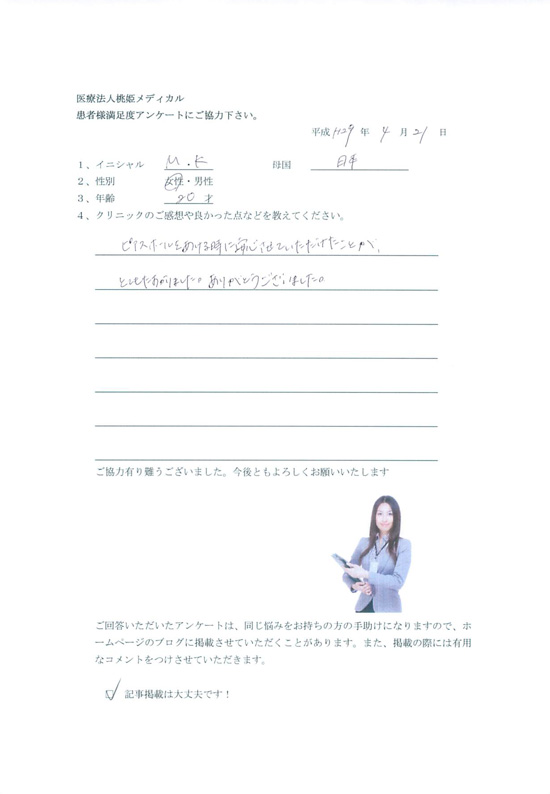 医療法人桃姫メディカル
患者様満足度アンケートにご協力下さい。
平成 H29 年 4 月 21 日
1、イニシャル M.K 母国 日本
2、性別 女性・男性
3、年齢 20 才
4、クリニックのご感想や良かった点などを教えてください。
ピアスホールをあける時に安心させていただけたことが、
とてもたあがりました。ありがとうございました。
ご協力有り難うございました。今後ともよろしくお願いいたします
ご回答いただいたアンケートは、同じ悩みをお持ちの方の手助けになりますので、ホ
ームページのブログに掲載させていただくことがあります。また、掲載の際には有用
なコメントをつけさせていただきます。
記事掲載は大丈夫です！